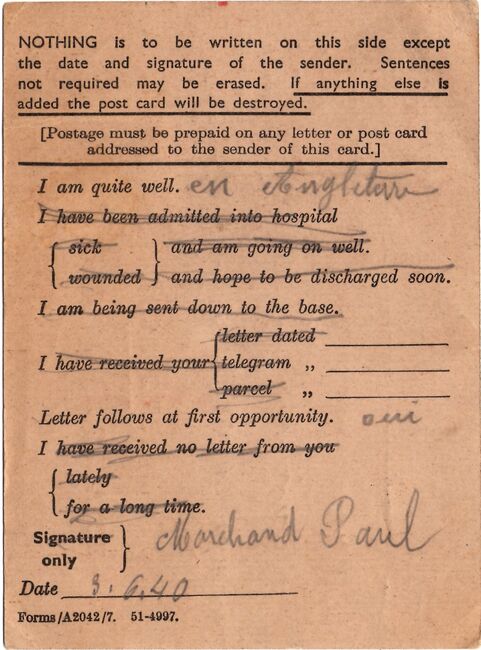 NOTHING is to be written on this side except
the date and signature of the sender. Sentences
not required may be erased. If anything else is
added the post card will be destroyed.
[Postage must be prepaid on any letter or post card
addressed to the sender of this card.]
I am quite well. en Angleterre
I have been admitted into hospital
sick and am going on well.
wounded and hope to be discharged soon.
I am being sent down to the base.
letter dated
I have received your telegram „
parcel „
Letter follows at first opportunity. oui
I have received no letter from you
lately
for a long time.
Signature only Marchand Paul
Date 3.6.40
Forms/A2042/7. 51-4997.